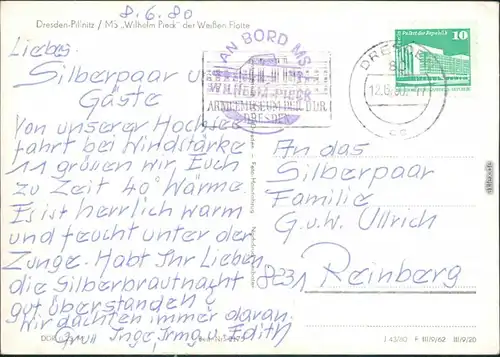 8.6.80
Dresden-Pillnitz / MS „Wilhelm Pieck" der Weißen Flotte
Liebes
Silberpaar und
Gäste
Von unserer Hochsee
fahrt bei Windstärke
11 grüßen wir Euch
zu Zeit 40° Wärme
Es ist herrlich warm
und feucht unter der
Zunge. Habt Ihr Lieben
die Silberbrautnacht
gut überstanden?
Wir dachten immer daran.
Gruß Inge, Irmg. u. Edith
AN BORD MS
WILHELM PIECK
ARMEEMUSEUM DER DDR
DRESDEN
DRESDEN
12.6.80
10
An das
Silberpaar
Familie
G. u. W. Ullrich
8231 Reinberg
I 43/80 F III/9/62 III/9/20